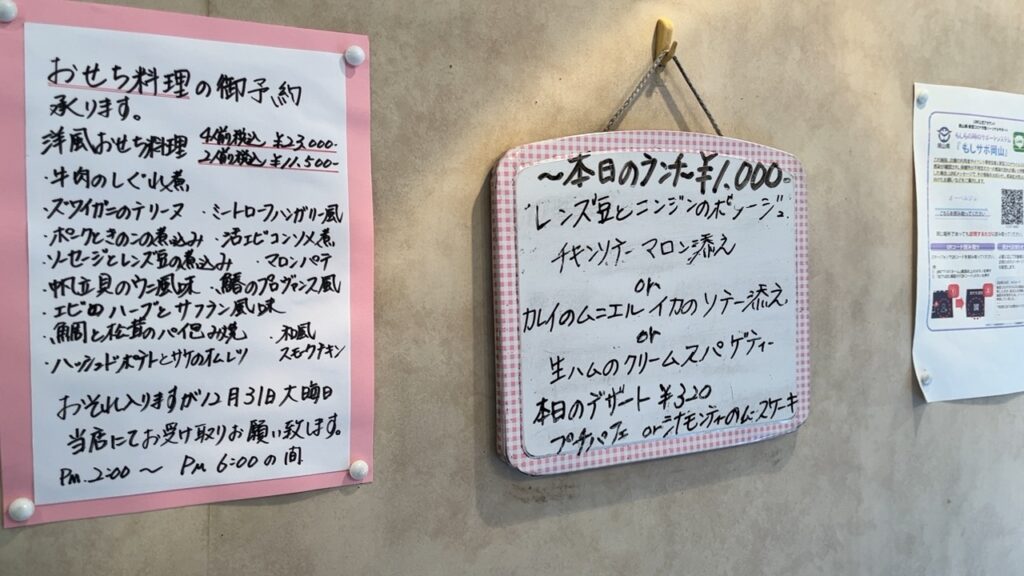 おせち料理の御予約
承ります。
洋風おせち料理 4人前税込 ¥23,000-
2人前税込 ¥11,500-
・牛肉のしぐれ煮
・ズワイガニのテリーヌ ・ミートローフハンガリー風
・ポークときのこの煮込み ・活エビコンソメ煮
・ソーセージとレンズ豆の煮込み ・マロンパテ
・帆立貝のウニ風味 ・鰆のプロヴァンス風
・エビのハーブとサフラン風味
・鯛と松茸のパイ包み焼 ・和風
スモークチキン
・ハッシュドポテトとサケのオムレツ
おそれ入りますが12月31日大晦日
当店にてお受け取りお願い致します。
Pm.2:00 〜 Pm 6:00の間
〜本日のランチ〜¥1,000-
レンズ豆とニンジンのポタージュ
チキンソテー マロン添え
or
カレイのムニエル イカのソテー添え
or
生ハムのクリームスパゲティー
本日のデザート ¥320
プチパフェ orシナモンティーのムースケーキ
もしもの時のサポートシステム
「もしサポ岡山」